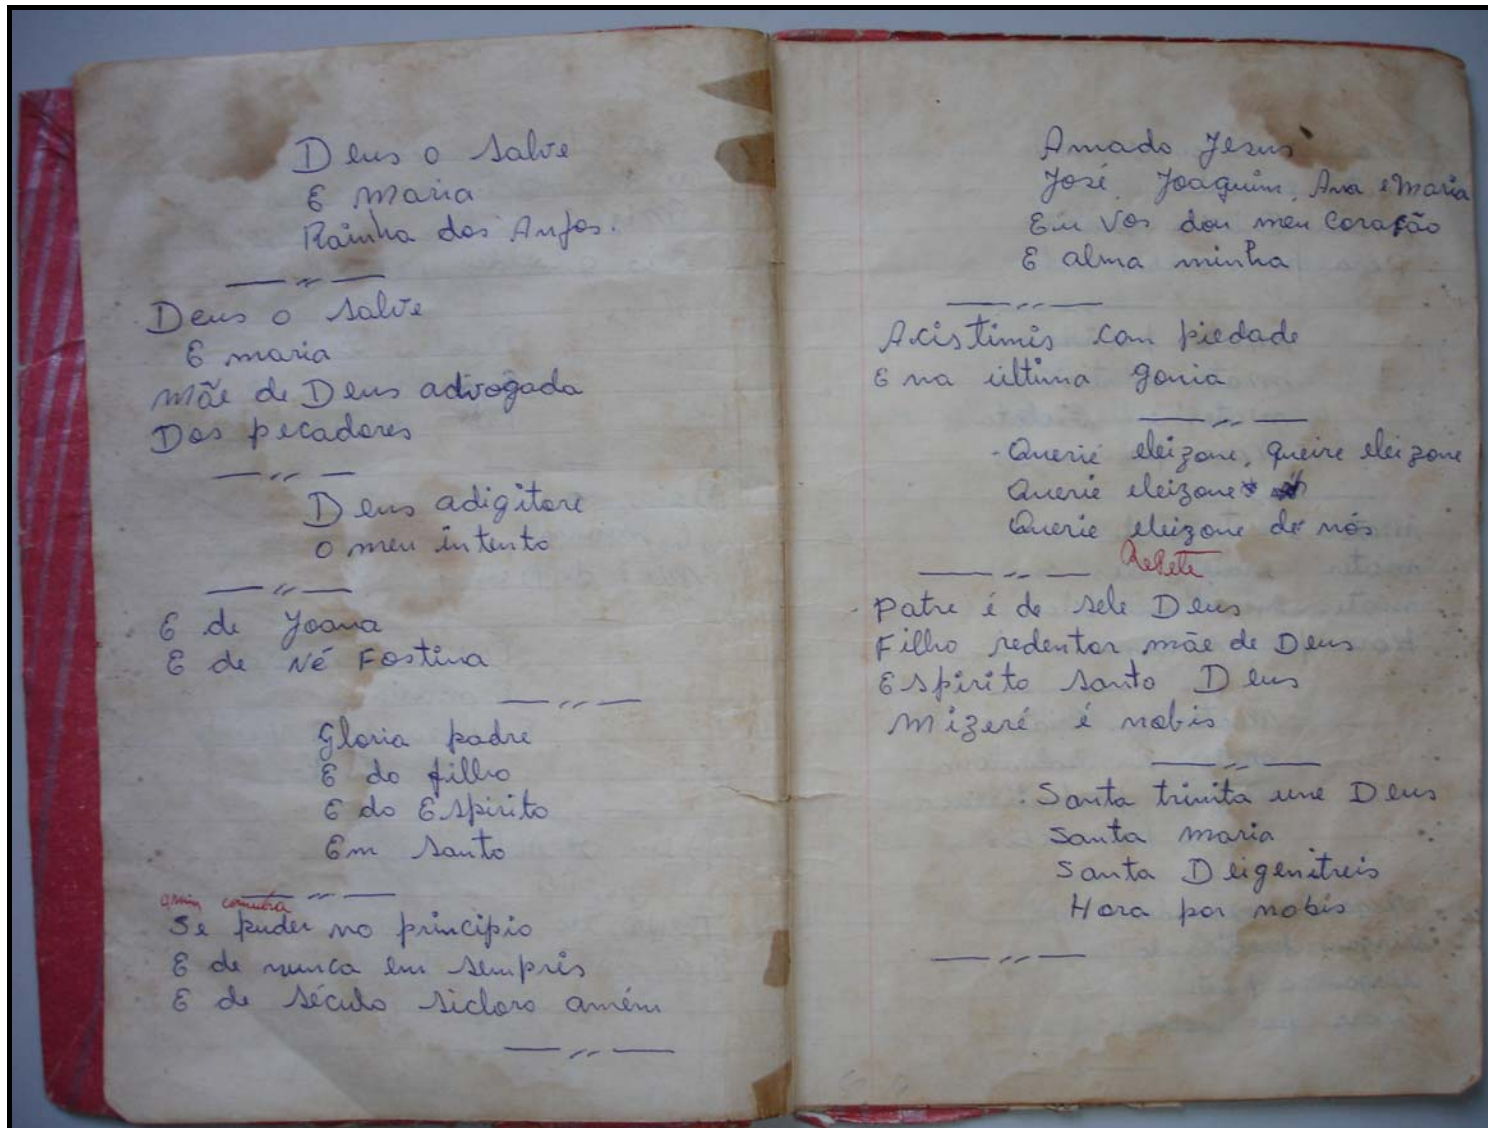 Deus o salve
E maria
Rainha dos Anjos.
Deus o salve
E maria
mãe de Deus advogada
Dos pecadores
Deus adigitore
o meu intento
E de Joana
E de Né Fostina
Gloria padre
E do filho
E do Espirito
Em Santo
Se puder no principio
E de nunca em sempris
E de século sicloro amém
Amado Jesus
José, Joaquim, Ana e Maria
Eu Vos dou meu Coração
E alma minha
Acistimis com piedade
E na ultima gonia
- Querié eleizone, queire eleizone
Querie eleizone
Querie eleizone de nós
Repete
Patre é de sele Deus
Filho redentor mãe de Deus
Espirito santo Deus
Mizeré é nobis
Santa trinita une Deus
Santa maria
Santa Deigenitreis
Hora por nobis